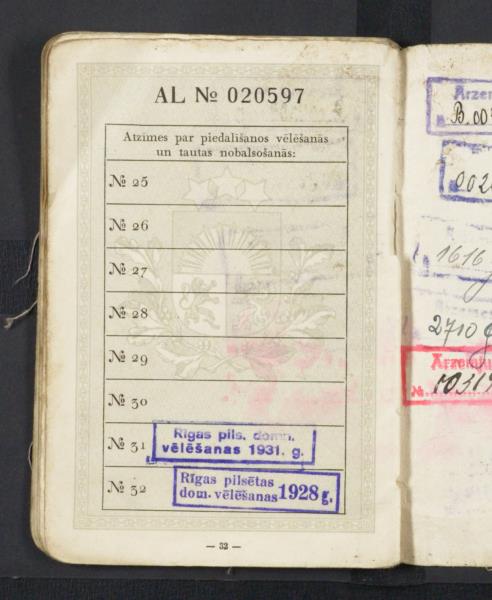 AL № 020597
Atzīmes par piedalīšanos vēlēšanās
un tautas nobalsošanās:
№ 25
№ 26
№ 27
№ 28
№ 29
№ 30
№ 31
Rīgas pils. domn.
vēlēšanas 1931. g.
№ 32
Rīgas pilsētas
dom. vēlēšanas 1928 g.
— 32 —
B.00
002
1616
2710
№ 1031